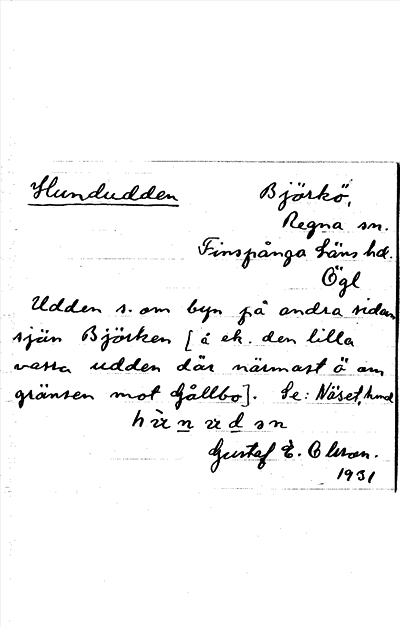 Hundudden Björkö,
Regna sn.
Finspånga läns hd.
Ögl
Udden s. om byn på andra sidan
sjön Björken [å ek. den lilla
vassa udden där närmast ö om
gränsen mot Gållbo]. Se: Näset, hund
Gustaf E. Olsson.
1931